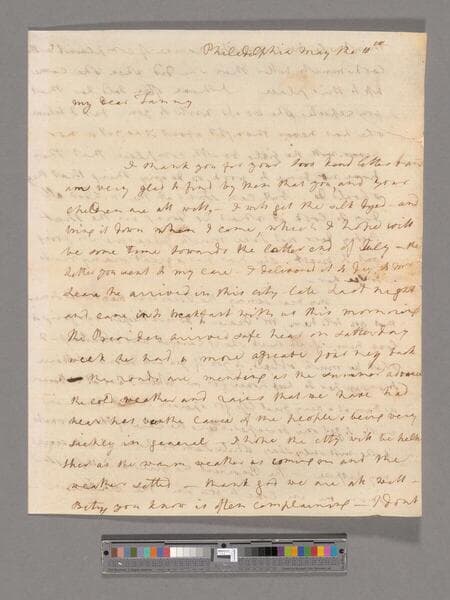 Philadelphia May the 11th
my dear Fanny
I thank you for your two kind letters and
am very glad to find by them that you and your
children are all well - I will get the silk dyed - and
bring it down when I come, which I hope will
be some time towards the latter end of July - the
letter you sent to my care I delivered it to day to Mr
Lear he arrived in this city late last night
and came in to breakfast with us this morning
the President arrived safe hear on satterday
week he had a more agreable journey back
the roads are mending as the summer advance
the cold weather and rains that we have had
hear has been the cause of the people's being very
sickly in general - I hope the city will be helth
ther as the warm weather is coming on and the
weather setled - thank god we are all well -
Betty you know is often complaining - I dont